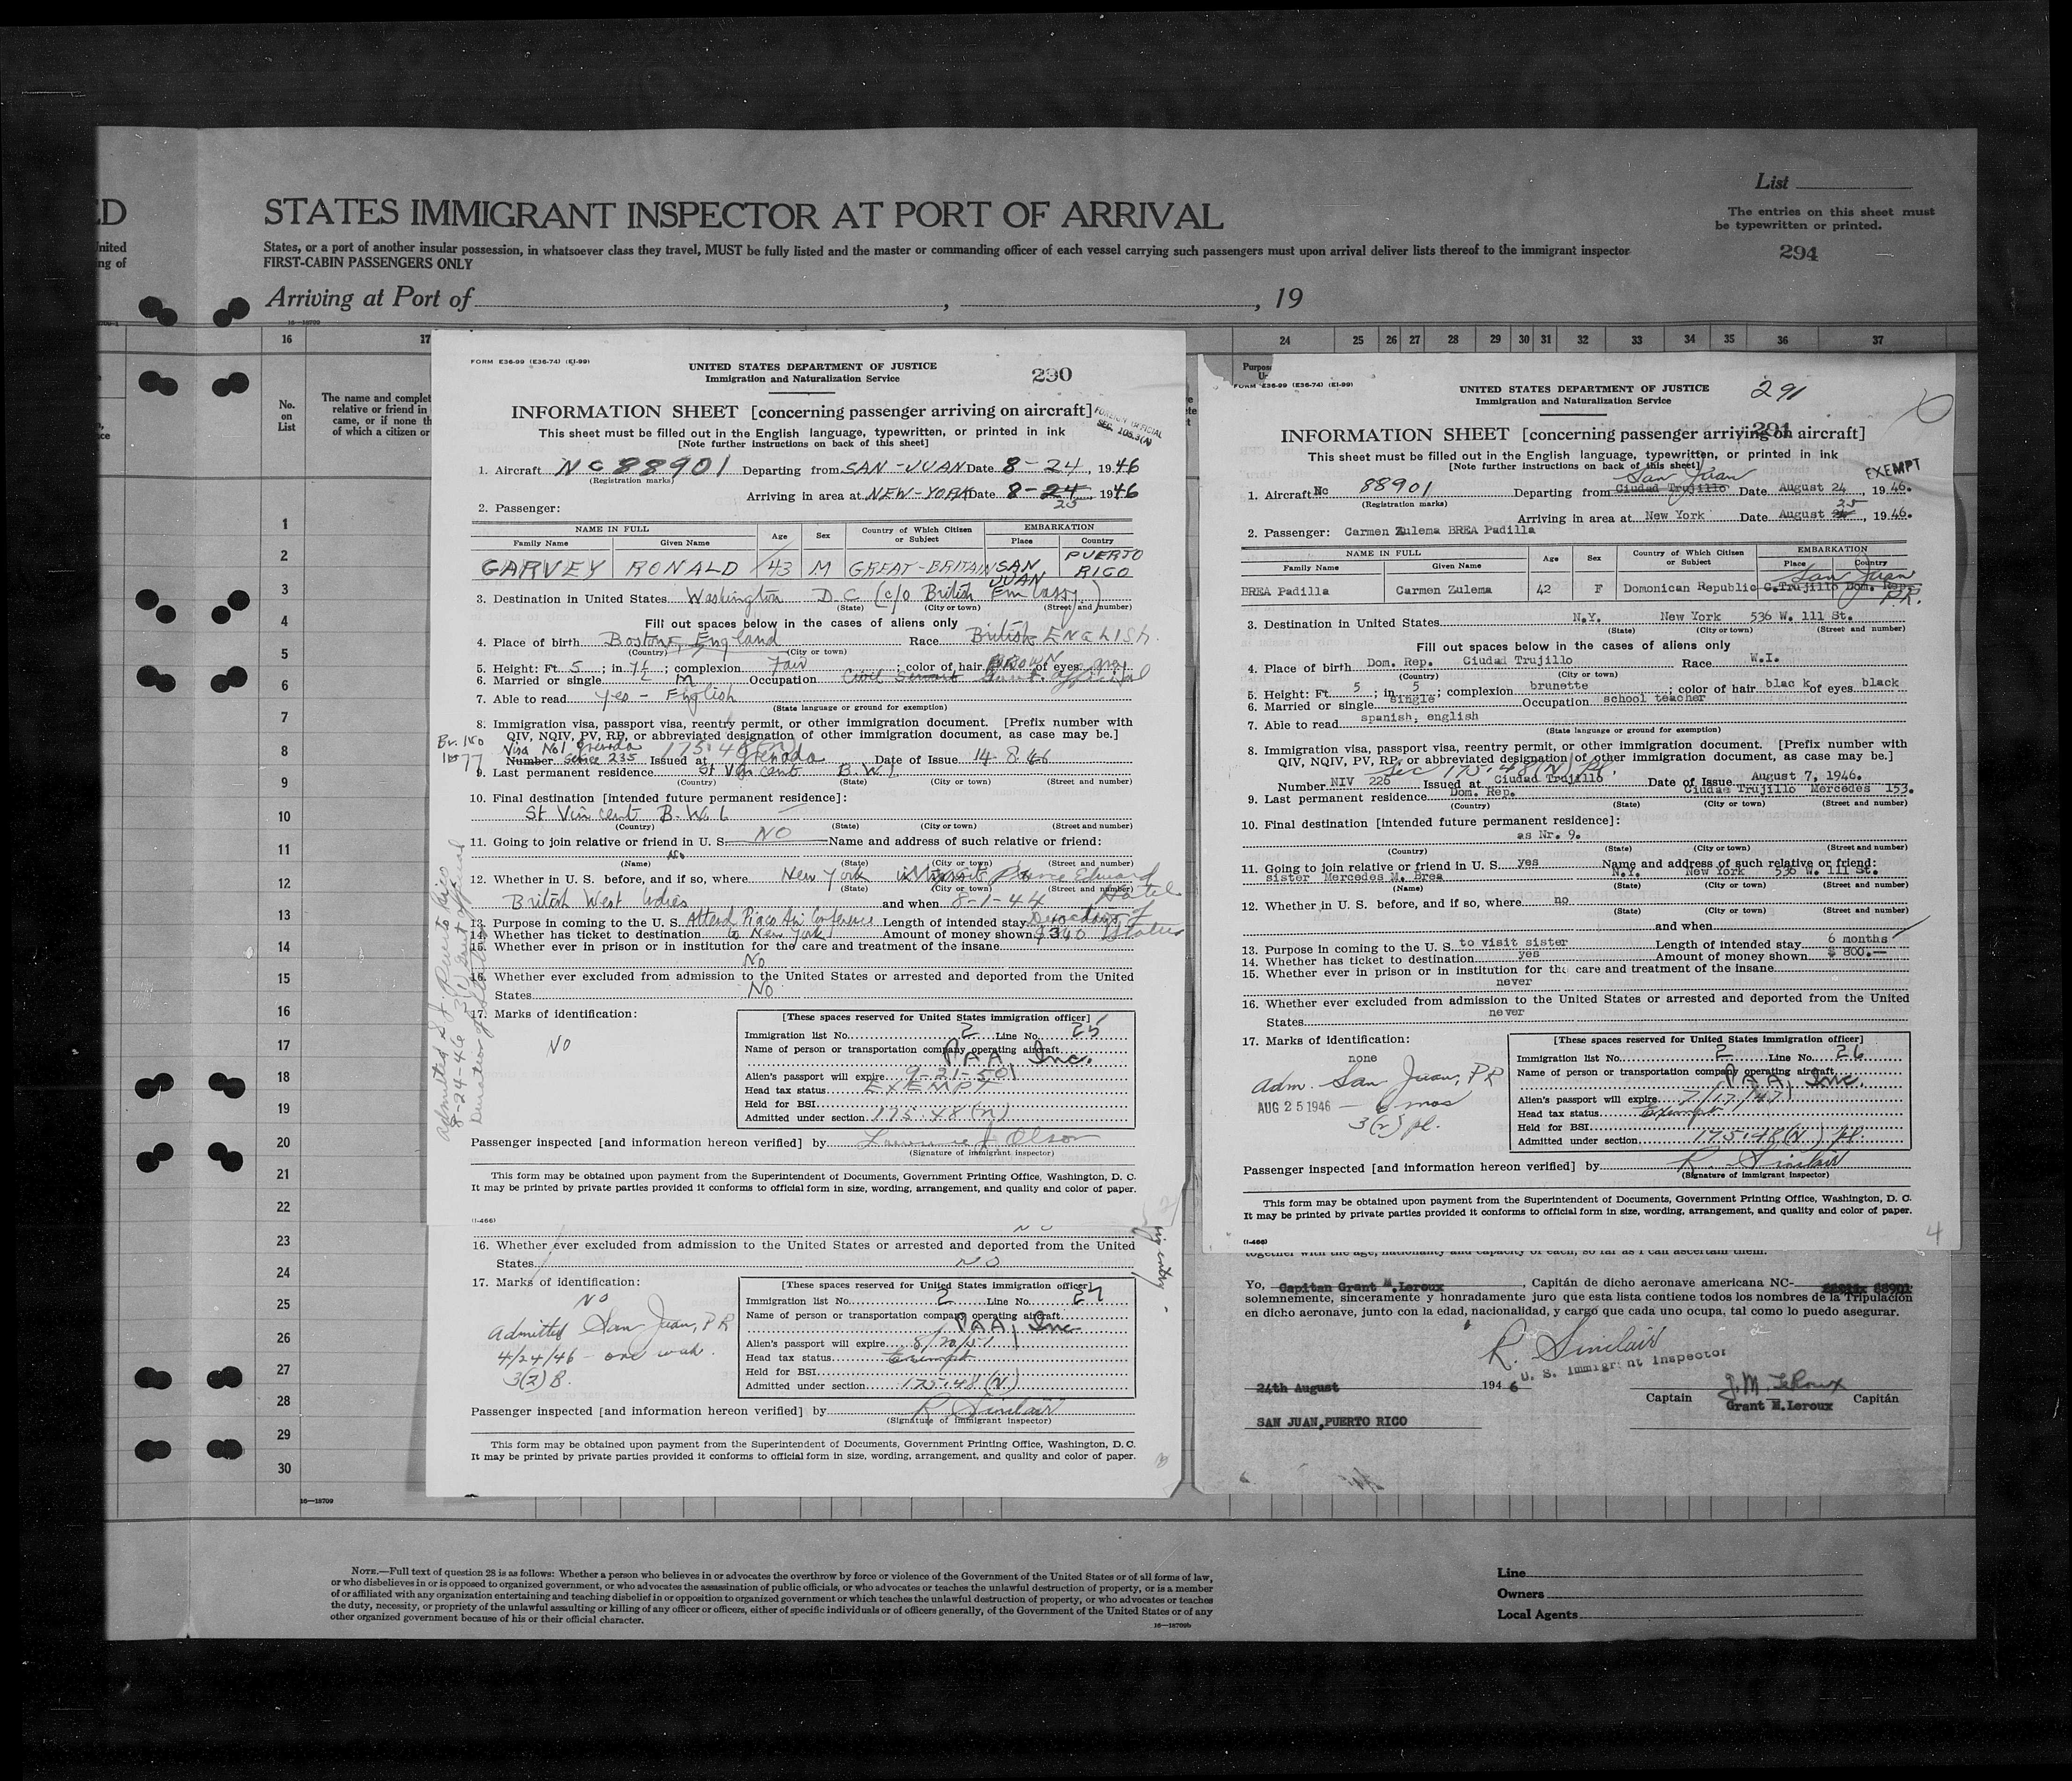 List
ED STATES IMMIGRANT INSPECTOR AT PORT OF ARRIVAL
The entries on this sheet must
be typewritten or printed.
294
nited States, or a port of another insular possession, in whatsoever class they travel, MUST be fully listed and the master or commanding officer of each vessel carrying such passengers must upon arrival deliver lists thereof to the immigrant inspector
ng of FIRST-CABIN PASSENGERS ONLY
Arriving at Port of , , 19
16—18709
16 17 24 25 26 27 28 29 30 31 32 33 34 35 36 37
No.
on
List
The name and complet
relative or friend in
came, or if none th
of which a citizen or
Purpos
1
2
3
4
5
6
7
8
9
10
11
12
13
14
15
16
17
18
19
20
21
22
23
24
25
26
27
28
29
30
16—18709
FORM E36-99 (E36-74) (EI-99)
UNITED STATES DEPARTMENT OF JUSTICE
Immigration and Naturalization Service
290
INFORMATION SHEET [concerning passenger arriving on aircraft]
FOREIGN OFFICIAL
SEC. 105.3(A)
This sheet must be filled out in the English language, typewritten, or printed in ink
[Note further instructions on back of this sheet]
1. Aircraft NC 88901 Departing from SAN-JUAN Date 8-24, 1946
(Registration marks)
Arriving in area at NEW-YORK Date 8-24, 1946
25
2. Passenger:
NAME IN FULL Age Sex Country of Which Citizen or Subject EMBARKATION
Family Name Given Name Place Country
GARVEY RONALD 43 M GREAT-BRITAIN SAN JUAN PUERTO RICO
3. Destination in United States Washington D.C (c/o British Embassy)
(State) (City or town) (Street and number)
Fill out spaces below in the cases of aliens only
4. Place of birth Boston, England Race British ENGLISH
(Country) (City or town)
5. Height: Ft. 5; in. 7½; complexion Fair; color of hair BROWN of eyes
6. Married or single M Occupation Civil Servant Govt. official
7. Able to read yes - English
(State language or ground for exemption)
8. Immigration visa, passport visa, reentry permit, or other immigration document. [Prefix number with
QIV, NQIV, PV, RP, or abbreviated designation of other immigration document, as case may be.]
Visa No1 Grenada 175.48(n)
Number 235 Issued at Grenada Date of Issue 14-8-46
9. Last permanent residence St Vincent B.W.I.
(Country) (State) (City or town) (Street and number)
10. Final destination [intended future permanent residence]:
St Vincent B.W.I
(Country) (State) (City or town) (Street and number)
11. Going to join relative or friend in U. S. NO Name and address of such relative or friend:
No
(Name) (State) (City or town) (Street and number)
12. Whether in U. S. before, and if so, where New York Prince Edward Hotel
(State) (City or town) (Street and number)
British West Indies and when 8-1-44
13. Purpose in coming to the U. S. Attend Picao Air Conference Length of intended stay Duration of Status
14. Whether has ticket to destination to New York Amount of money shown $340
15. Whether ever in prison or in institution for the care and treatment of the insane
No
16. Whether ever excluded from admission to the United States or arrested and deported from the United
States No
17. Marks of identification:
NO
[These spaces reserved for United States immigration officer]
Immigration list No. 2 Line No. 25
Name of person or transportation company operating aircraft
PAA, Inc.
Alien's passport will expire 9-21-50
Head tax status EXEMPT
Held for BSI
Admitted under section 175.48(n)
Passenger inspected [and information hereon verified] by Olson
(Signature of immigrant inspector)
This form may be obtained upon payment from the Superintendent of Documents, Government Printing Office, Washington, D. C.
It may be printed by private parties provided it conforms to official form in size, wording, arrangement, and quality and color of paper.
(I-466)
16. Whether ever excluded from admission to the United States or arrested and deported from the United
States NO
17. Marks of identification:
NO
Admitted San Juan, PR
4/24/46 - one week.
3(2) B.
[These spaces reserved for United States immigration officer]
Immigration list No. 2 Line No. 27
Name of person or transportation company operating aircraft
PAA, Inc
Alien's passport will expire 8/20/51
Head tax status Exempt
Held for BSI
Admitted under section 175.48(N)
Passenger inspected [and information hereon verified] by R Sinclair
(Signature of immigrant inspector)
This form may be obtained upon payment from the Superintendent of Documents, Government Printing Office, Washington, D. C.
It may be printed by private parties provided it conforms to official form in size, wording, arrangement, and quality and color of paper.
FORM E36-99 (E36-74) (EI-99)
UNITED STATES DEPARTMENT OF JUSTICE
Immigration and Naturalization Service
291
291
INFORMATION SHEET [concerning passenger arriving on aircraft]
This sheet must be filled out in the English language, typewritten, or printed in ink
[Note further instructions on back of this sheet]
EXEMPT
San Juan
1. Aircraft Nc 88901 Departing from Ciudad Trujillo Date August 24, 1946.
(Registration marks)
25
Arriving in area at New York Date August 24, 1946.
2. Passenger: Carmen Zulema BREA Padilla
NAME IN FULL Age Sex Country of Which Citizen or Subject EMBARKATION
Family Name Given Name Place Country
San Juan
BREA Padilla Carmen Zulema 42 F Domonican Republic C.Trujillo Dom. Rep.
P.R.
3. Destination in United States N.Y. New York 536 W. 111 St.
(State) (City or town) (Street and number)
Fill out spaces below in the cases of aliens only
4. Place of birth Dom. Rep. Ciudad Trujillo Race W.I.
(Country) (City or town)
5. Height: Ft. 5; in. 5; complexion brunette; color of hair blac k of eyes black
6. Married or single single Occupation school teacher
7. Able to read spanish, english
(State language or ground for exemption)
8. Immigration visa, passport visa, reentry permit, or other immigration document. [Prefix number with
QIV, NQIV, PV, RP, or abbreviated designation of other immigration document, as case may be.]
Sec 175.48(N) Pl.
Number NIV 225 Issued at Ciudad Trujillo Date of Issue August 7, 1946.
9. Last permanent residence Dom. Rep. Ciudad Trujillo Mercedes 153.
(Country) (State) (City or town) (Street and number)
10. Final destination [intended future permanent residence]:
as Nr. 9.
(Country) (State) (City or town) (Street and number)
11. Going to join relative or friend in U. S. yes Name and address of such relative or friend:
sister Mercedes M. Brea N.Y. New York 536 W. 111 St.
(Name) (State) (City or town) (Street and number)
12. Whether in U. S. before, and if so, where no
(State) (City or town) (Street and number)
and when
13. Purpose in coming to the U. S. to visit sister Length of intended stay 6 months
14. Whether has ticket to destination yes Amount of money shown $ 800.—
15. Whether ever in prison or in institution for the care and treatment of the insane
never
16. Whether ever excluded from admission to the United States or arrested and deported from the United
States never
17. Marks of identification:
none
adm. San Juan, PR
AUG 25 1946 — 6 mos
3(2) pl.
[These spaces reserved for United States immigration officer]
Immigration list No. 2 Line No. 26
Name of person or transportation company operating aircraft
PAA, Inc.
Alien's passport will expire 7/17/47
Head tax status Exempt
Held for BSI
Admitted under section 175.48(N) pl.
Passenger inspected [and information hereon verified] by R. Sinclair
(Signature of immigrant inspector)
This form may be obtained upon payment from the Superintendent of Documents, Government Printing Office, Washington, D. C.
It may be printed by private parties provided it conforms to official form in size, wording, arrangement, and quality and color of paper.
(I-466)
4
together with the age, nationality and capacity of each, so far as I can ascertain them.
Yo, Capitan Grant M.Leroux, Capitán de dicho aeronave americana NC- 88901
solemnemente, sinceramente y honradamente juro que esta lista contiene todos los nombres de la Tripulación
en dicho aeronave, junto con la edad, nacionalidad, y cargo que cada uno ocupa, tal como lo puedo asegurar.
R. Sinclair
U. S. Immigrant Inspector
24th August 1946
Captain Grant M.Leroux Capitán
SAN JUAN,PUERTO RICO
NOTE.—Full text of question 28 is as follows: Whether a person who believes in or advocates the overthrow by force or violence of the Government of the United States or of all forms of law,
or who disbelieves in or is opposed to organized government, or who advocates the assassination of public officials, or who advocates or teaches the unlawful destruction of property, or is a member
of or affiliated with any organization entertaining and teaching disbelief in or opposition to organized government or which teaches the unlawful destruction of property, or who advocates or teaches
the duty, necessity, or propriety of the unlawful assaulting or killing of any officer or officers, either of specific individuals or of officers generally, of the Government of the United States or of any
other organized government because of his or their official character.
16—18709b
Line
Owners
Local Agents